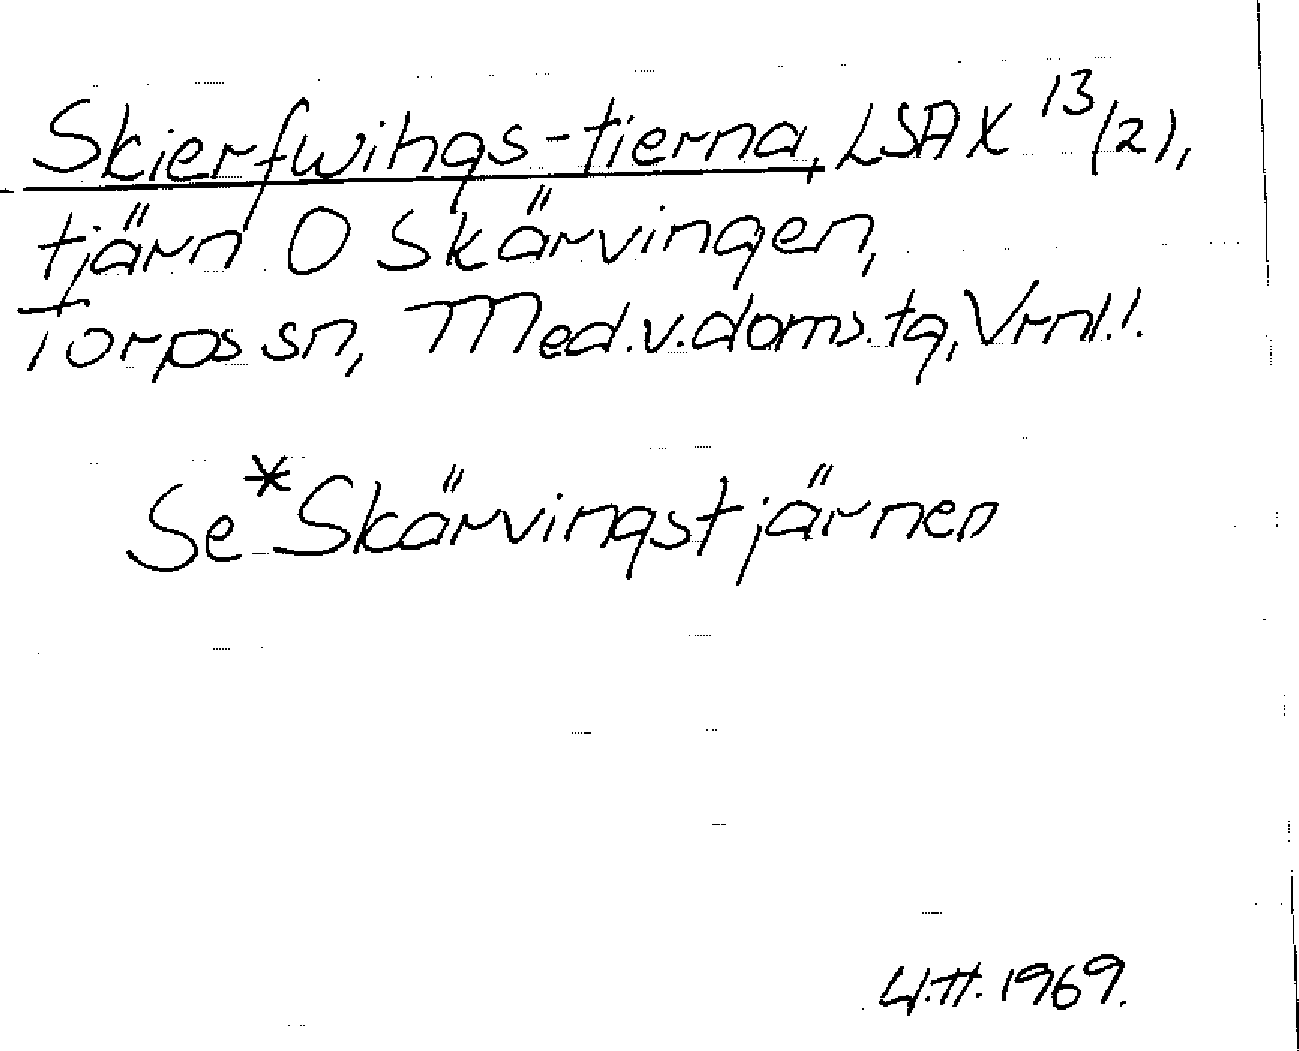 Skierfwings-tierna, LSA X 13/(2),
tjärn O Skärvingen,
Torps sn, Med.v.doms.tg, Vrnl.!.
Se *Skärvingstjärnen
4.II.1969.